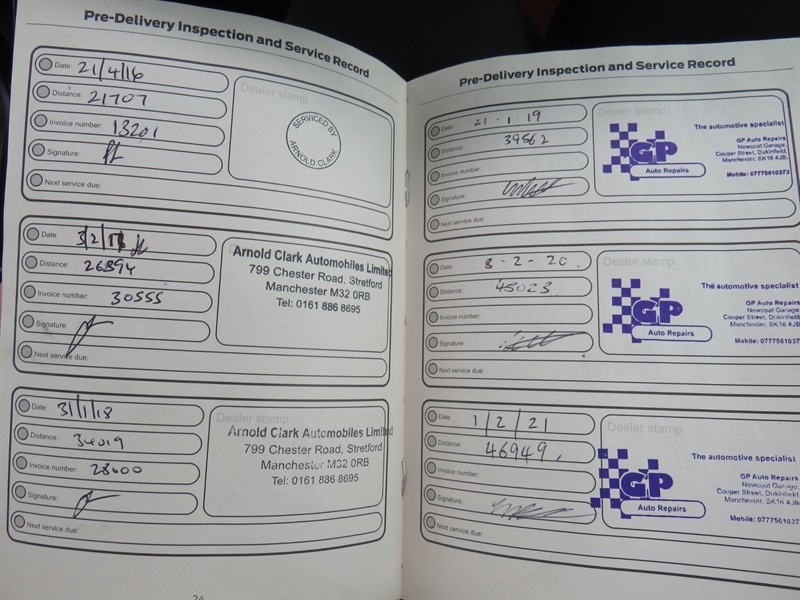 Pre-Delivery Inspection and Service Record
Date: 21/4/16
Distance: 21707
Invoice number: 13201
Signature:
Next service due:
Dealer stamp
SERVICED BY
ARNOLD CLARK
Date: 3/2/
Distance: 26894
Invoice number: 30555
Signature:
Next service due:
Arnold Clark Automobiles Limited
799 Chester Road, Stretford
Manchester M32 0RB
Tel: 0161 886 8695
Date: 31/1/18
Distance: 34019
Invoice number: 28600
Signature:
Next service due:
Dealer stamp
Arnold Clark Automobiles Limited
799 Chester Road, Stretford
Manchester M32 0RB
Tel: 0161 886 8695
Pre-Delivery Inspection and Service Record
Date: 21-1-19
Distance: 39562
Invoice number:
Signature:
Next service due:
Dealer stamp
The automotive specialist
GP Auto Repairs
Newcoat Garage,
Cooper Street, Dukinfield,
Manchester, SK16 4JB.
Mobile: 07775610373
GP
Auto Repairs
Date: 8-2-20.
Distance: 45023
Invoice number:
Signature:
Next service due:
Dealer stamp
The automotive specialist
GP Auto Repairs
Newcoat Garage,
Cooper Street, Dukinfield
Manchester, SK16 4JB
Mobile: 0777561037
GP
Auto Repairs
Date: 1/2/21
Distance: 46949.
Invoice number:
Signature:
Next service due:
Dealer stamp
The automotive specialist
GP Auto Repairs
Newcoat Garage,
Cooper Street, Dukinfield,
Manchester, SK16 4JB
Mobile: 0777561037
GP
Auto Repairs